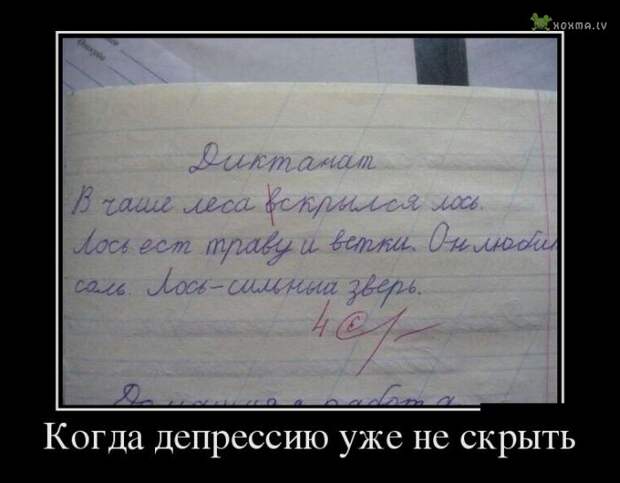 хохма.lv
Диктанат
В чаше леса вскрылся лось.
Лось ест траву и ветки. Он любит
соль. Лось-сильныи зверь.
4
Домашняя работа
Когда депрессию уже не скрыть